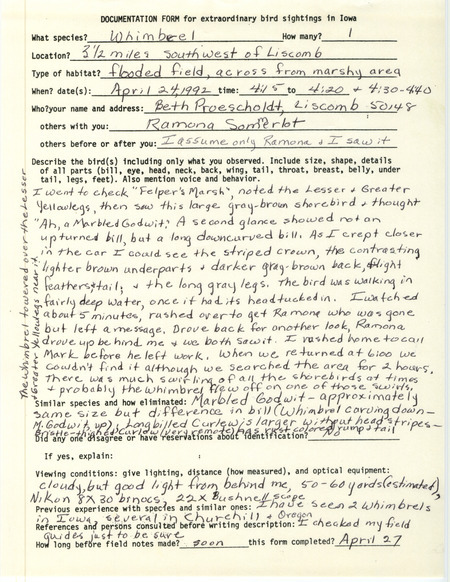 DOCUMENTATION FORM for extraordinary bird sightings in Iowa
What species? Whimbrel How many? 1
Location? 3 1/2 miles southwest of Liscomb
Type of habitat? flooded field, across from marshy area
When? date(s): April 24, 1992 time: 4:15 to 4:20 + 4:30-4:40
Who? your name and address: Beth Proescholdt, Liscomb 50148
others with you: Ramona Somerlot
others before or after you: I assume only Ramona & I saw it
Describe the bird(s) including only what you observed. Include size, shape, details
of all parts (bill, eye, head, neck, back, wing, tail, throat, breast, belly, under
tail, legs, feet). Also mention voice and behavior.
I went to check "Felper's Marsh", noted the Lesser & Greater
Yellowlegs, then saw this large gray-brown shorebird & thought
"Ah, a Marbled Godwit." A second glance showed not an
upturned bill, but a long downcurved bill. As I crept closer
in the car I could see the striped crown, the contrasting
lighter brown underparts & darker gray-brown back, flight
feathers & tail, & the long gray legs. The bird was walking in
fairly deep water, once it had its head tucked in. I watched
about 5 minutes, rushed over to get Ramona who was gone
but left a message. Drove back for another look, Ramona
drove up behind me & we both saw it. I rushed home to call
Mark before he left work. When we returned at 6:00 we
couldn't find it although we searched the area for 2 hours.
There was much swirling of all the shorebirds at times
& probably the whimbrel flew off on one of those swirls.
The Whimbrel towered over the Lesser
& Greater Yellowlegs near it.
Similar species and how eliminated: Marbled Godwit - approximately
same size but difference in bill (Whimbrel curving down-
M. Godwit up); Longbilled Curlew is larger without head stripes-
Bristle-thighed Curlew (very remote) has rust colored rump & tail
Did any one disagree or have reservations about identification? No
If yes, explain:
Viewing conditions: give lighting, distance (how measured), and optical equipment:
cloudy, but good light from behind me, 50-60 yards (estimated),
Nikon 8X30 binocs, 22X Bushnell scope
Previous experience with species and similar ones: I have seen 2 whimbrels
in Iowa, several in Churchill & Oregon
References and persons consulted before writing description: I checked my field
guides just to be sure
How long before field notes made? soon this form completed? April 27